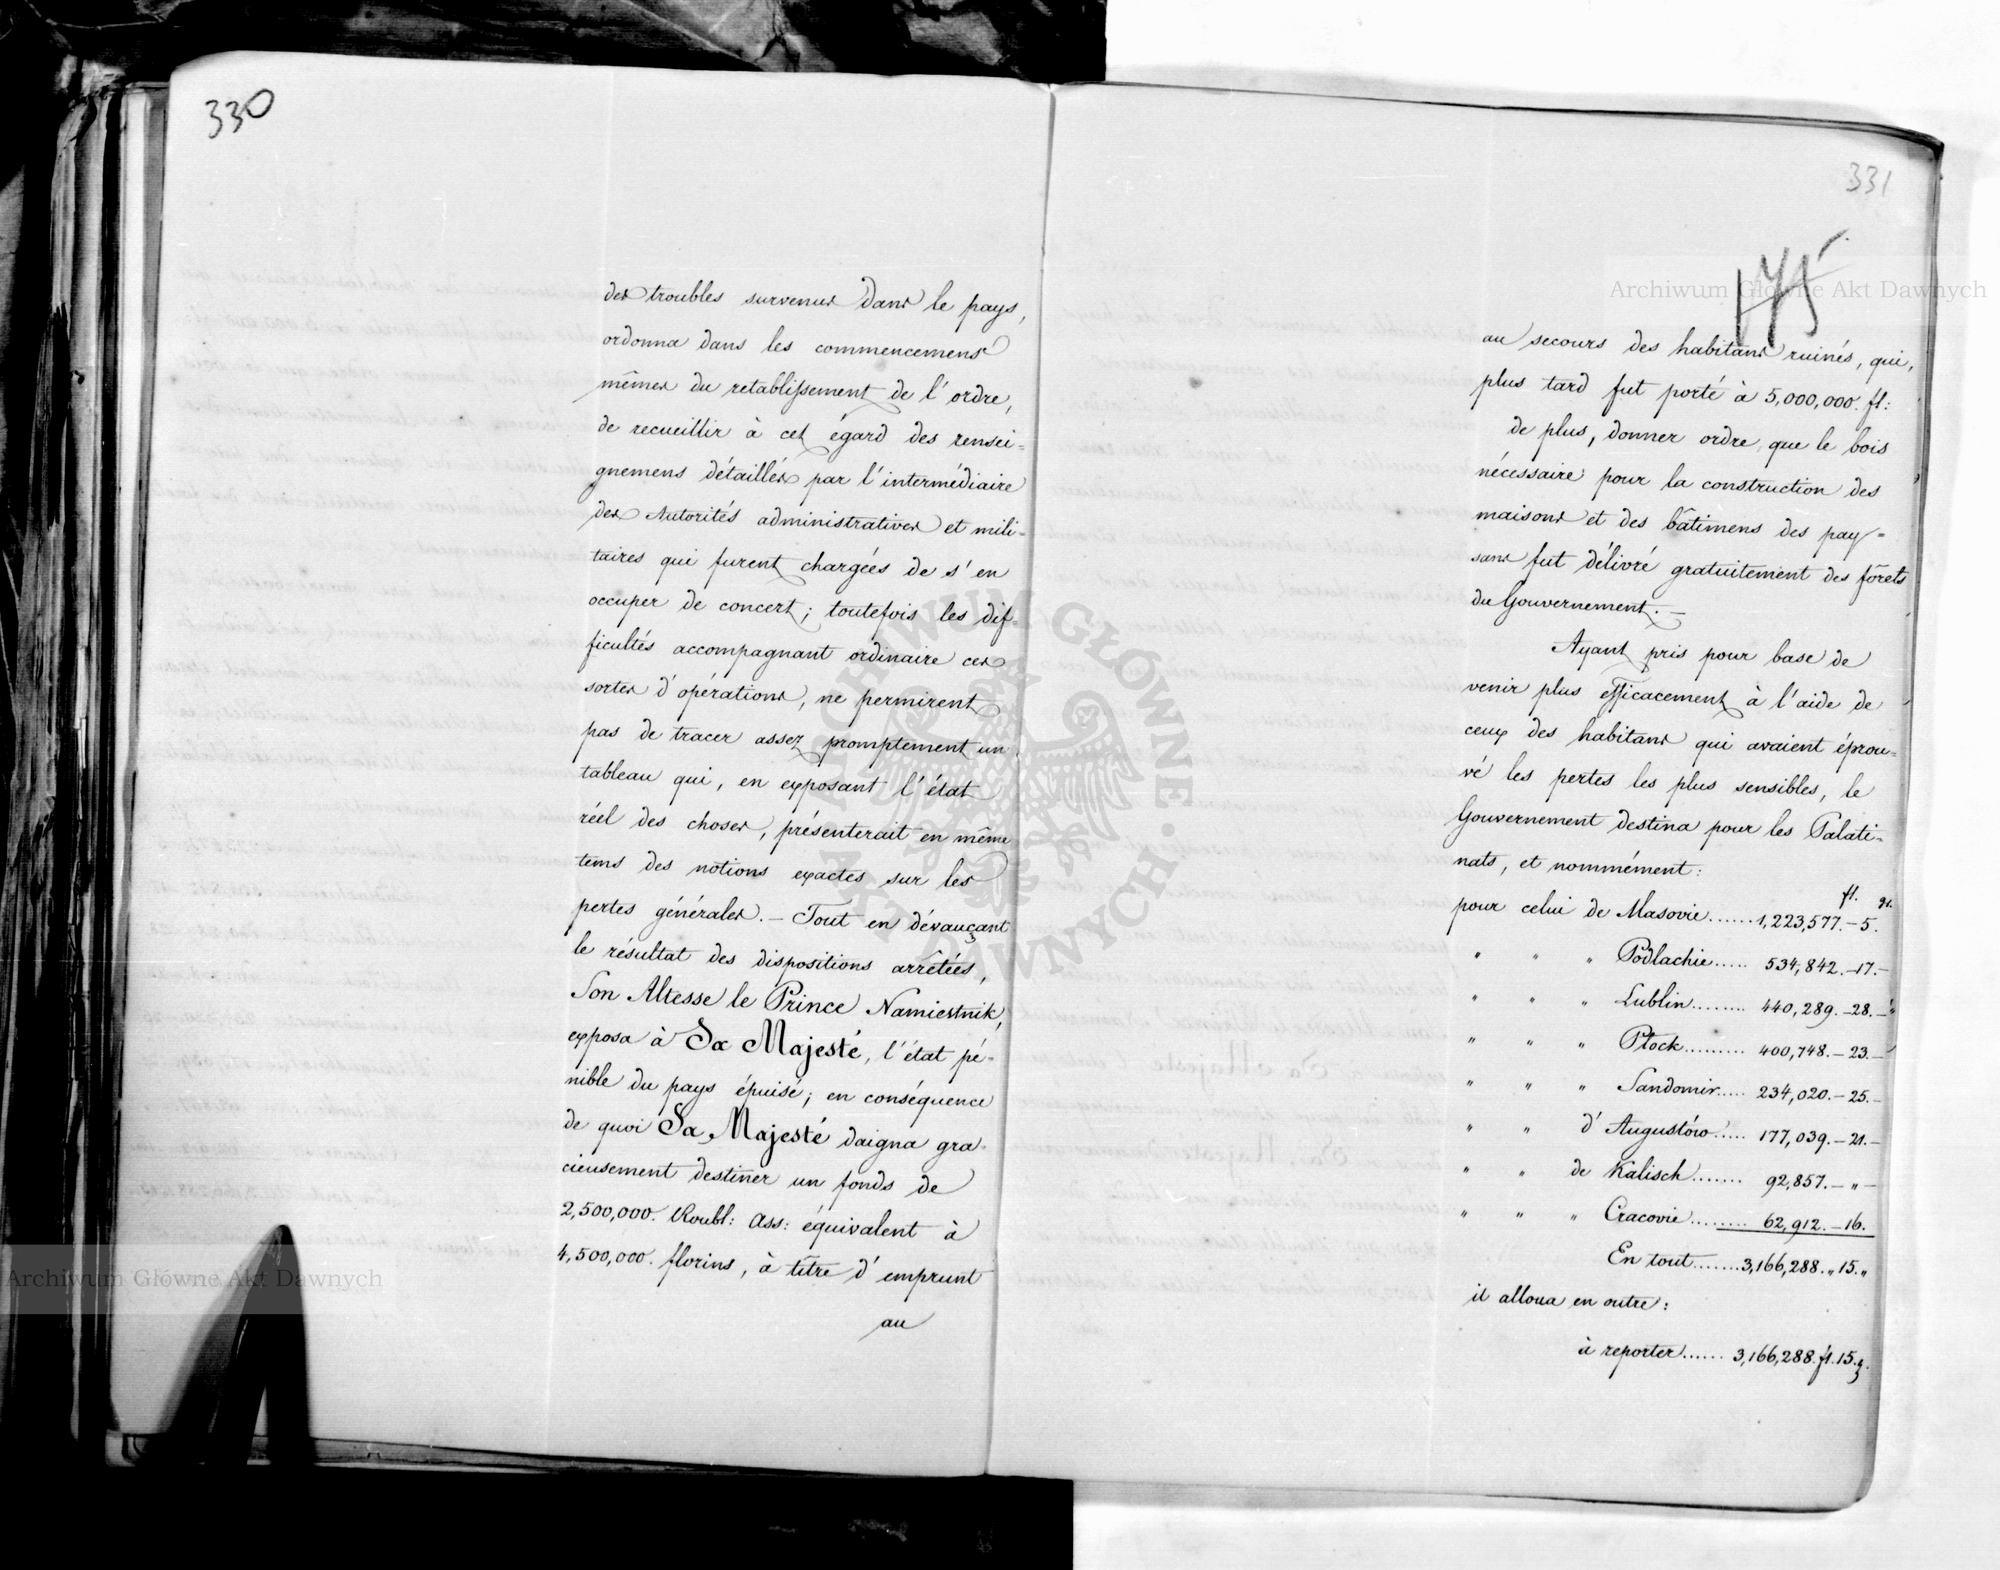 330
des troubles survenus dans le pays,
ordonna dans les commencemens
mêmes du retablissement de l'ordre,
de recueillir à cet égard des rensei-
gnemens détaillés par l'intermédiaire
des Autorités administratives et mili-
taires qui furent chargées de s'en
occuper de concert; toutefois les dif-
ficultés accompagnant ordinaire ces
sortes d'opérations, ne permirent
pas de tracer assez promptement un
tableau qui, en exposant l'état
réel des choses, présenterait en même
tems des notions exactes sur les
pertes générales. - Tout en dévançant
le résultat des dispositions arrêtées,
Son Altesse le Prince Namiestnik,
exposa à Sa Majesté, l'état pé-
nible du pays épuisé; en conséquence
de quoi Sa Majesté daigna gra-
cieusement destiner un fonds de
2,500,000. Roubl: Ass: équivalent à
4,500,000. florins, à tître d'emprunt
au
331
175
au secours des habitans ruinés, qui,
plus tard fut porté à 5,000,000. fl:
de plus, donner ordre, que le bois
nécessaire pour la construction des
maisons et des bâtimens des pay-
sans fut délivré gratuitement des fôrets
du Gouvernement. -
Ayant pris pour base de
venir plus efficacement à l'aide de
ceux des habitans qui avaient éprou-
vé les pertes les plus sensibles, le
Gouvernement destina pour les Palati-
nats, et nommément:
fl. gr.
pour celui de Masovie......1,223,577.-5.
" " " Podlachie..... 534,842.-17.-
" " " Lublin........ 440,289.-28.-
" " " Płock......... 400,748.-23.-
" " " Sandomir..... 234,020.-25.-
" " d'Augustów..... 177,039.-21.-
" " de Kalisch....... 92,857.-"-
" " " Cracovie........ 62,912.-16.
En tout.......3,166,288.„15.„
il alloua en outre:
à reporter...... 3,166,288.fl.15.g.
Archiwum Główne Akt Dawnych
Archiwum Główne Akt Dawnych
ARCHIWUM GŁÓWNE AKT DAWNYCH